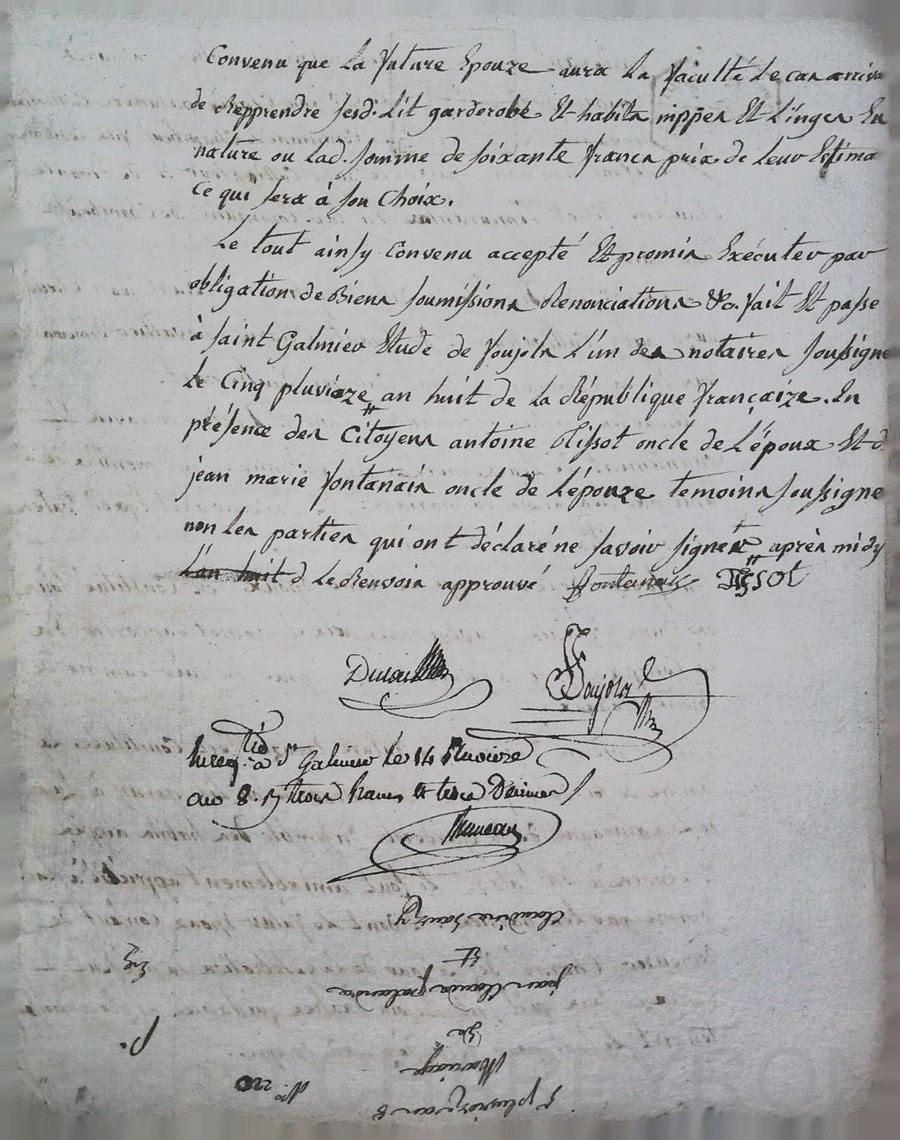 Convenu que la future Epouze aura la faculté le cas arriva
de Repprendre sesd. Lit garderobe Et habits nippes Et Linges En
nature ou lad. somme de soixante francs prix de leur Estima
ce qui sera à son choix.
Le tout ainsy Convenu accepté Et promis Exécuter par
obligation de Biens soumissions Renonciations &c. fait Et passé
à saint Galmier Etude de Poujols L'un des notaires soussigné
Le Cinq pluvioze an huit de la République françaize. En
présence des Citoyens antoine Tissot oncle de L'époux Et d
jean marie fontanais oncle de Lépouze temoins soussigné
non les parties qui ont déclaré ne savoir signer après midy
L'an huit d Le Renvoir approuvé fontanais Tissot
Poujols
Enreg. à St Galmier le 14 Pluviose
an 8. trois francs et trois Décimes
5 pluvioz an 8
N°. 220
Mariage
De
p.
jean Claude
Et
Claudine